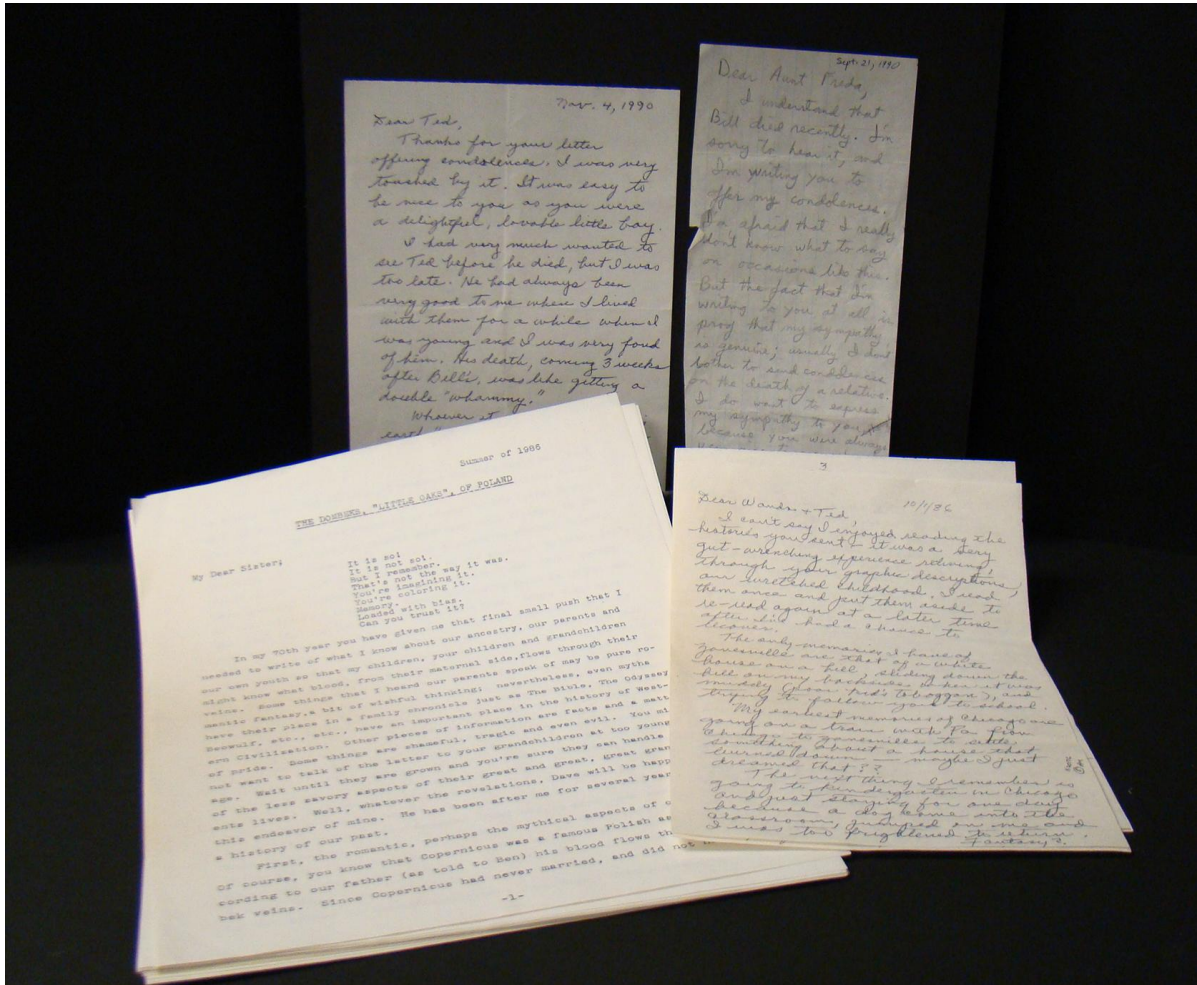 Nov. 4, 1990
Dear Ted,
Thanks for your letter
offering condolences. I was very
touched by it. It was easy to
be nice to you as you were
a delightful, lovable little boy.
I had very much wanted to
see Ted before he died, but I was
too late. He had always been
very good to me when I lived
with them for a while when I
was young and I was very fond
of him. His death, coming 3 weeks
after Bill's, was like getting a
double "whammy."
Whoever it
earth"
Sept. 21, 1990
Dear Aunt Freda,
I understand that
Bill died recently. I'm
sorry to hear it, and
I'm writing you to
offer my condolences.
I'm afraid that I really
don't know what to say
on occasions like this.
But the fact that I'm
writing to you at all is
proof that my sympathy
is genuine; usually I don't
bother to send condolences
on the death of a relative.
I do want to express
my sympathy to you
because you were always
Summer of 1986
THE DOMBEKS, "LITTLE OAKS", OF POLAND
My Dear Sister;
It is so!
It is not so!.
But I remember.
That's not the way it was.
You're imagining it.
You're coloring it.
Memory.
Loaded with bias.
Can you trust it?
In my 70th year you have given me that final small push that I
needed to write of what I know about our ancestry, our parents and
our own youth so that my children, your children and grandchildren
might know what blood, from their maternal side, flows through their
veins. Some things that I heard our parents speak of may be pure ro-
mantic fantasy, a bit of wishful thinking; nevertheless, even myths
have their place in a family chronicle just as The Bible, The Odyssey
Beowulf, etc., etc., have an important place in the history of West-
ern Civilization. Other pieces of information are facts and a matt
of pride. Some things are shameful, tragic and even evil. You mi
not want to talk of the latter to your grandchildren at too young
age. Wait until they are grown and you're sure they can handle
of the less savory aspects of their great and great, great gran
ents lives. Well, whatever the revelations, Dave will be happ
this endeavor of mine. He has been after me for several year
a history of our past.
First, the romantic, perhaps the mythical aspects of
Of course, you know that Copernicus was a famous Polish as
cording to our father (as told to Ben) his blood flows th
bek veins. Since Copernicus had never married, and did not
-1-
3
10/1/86
Dear Wanda & Ted,
I can't say I enjoyed reading the
histories you sent - it was a very
gut-wrenching experience reliving,
through your graphic descriptions,
our wretched childhood. I read
them once and put them aside to
re-read again at a later time
after I've had a chance to
The only memories I have of
Zanesville are that of a white
house on a hill, sliding down the
hill on my backside when it was
muddy (poor kid's toboggan), and
trying to follow you to school.
My earliest memories of Chicago are
going on a train with Pa from
Chicago to Zanesville to settle
something about a house that
burned down — maybe I just
dreamed that??
The next thing I remember is
going to kindergarten in Chicago
and just staying for one day
because a dog came into the
classroom, jumped on me and
I was too frightened to return.
Fantasy?